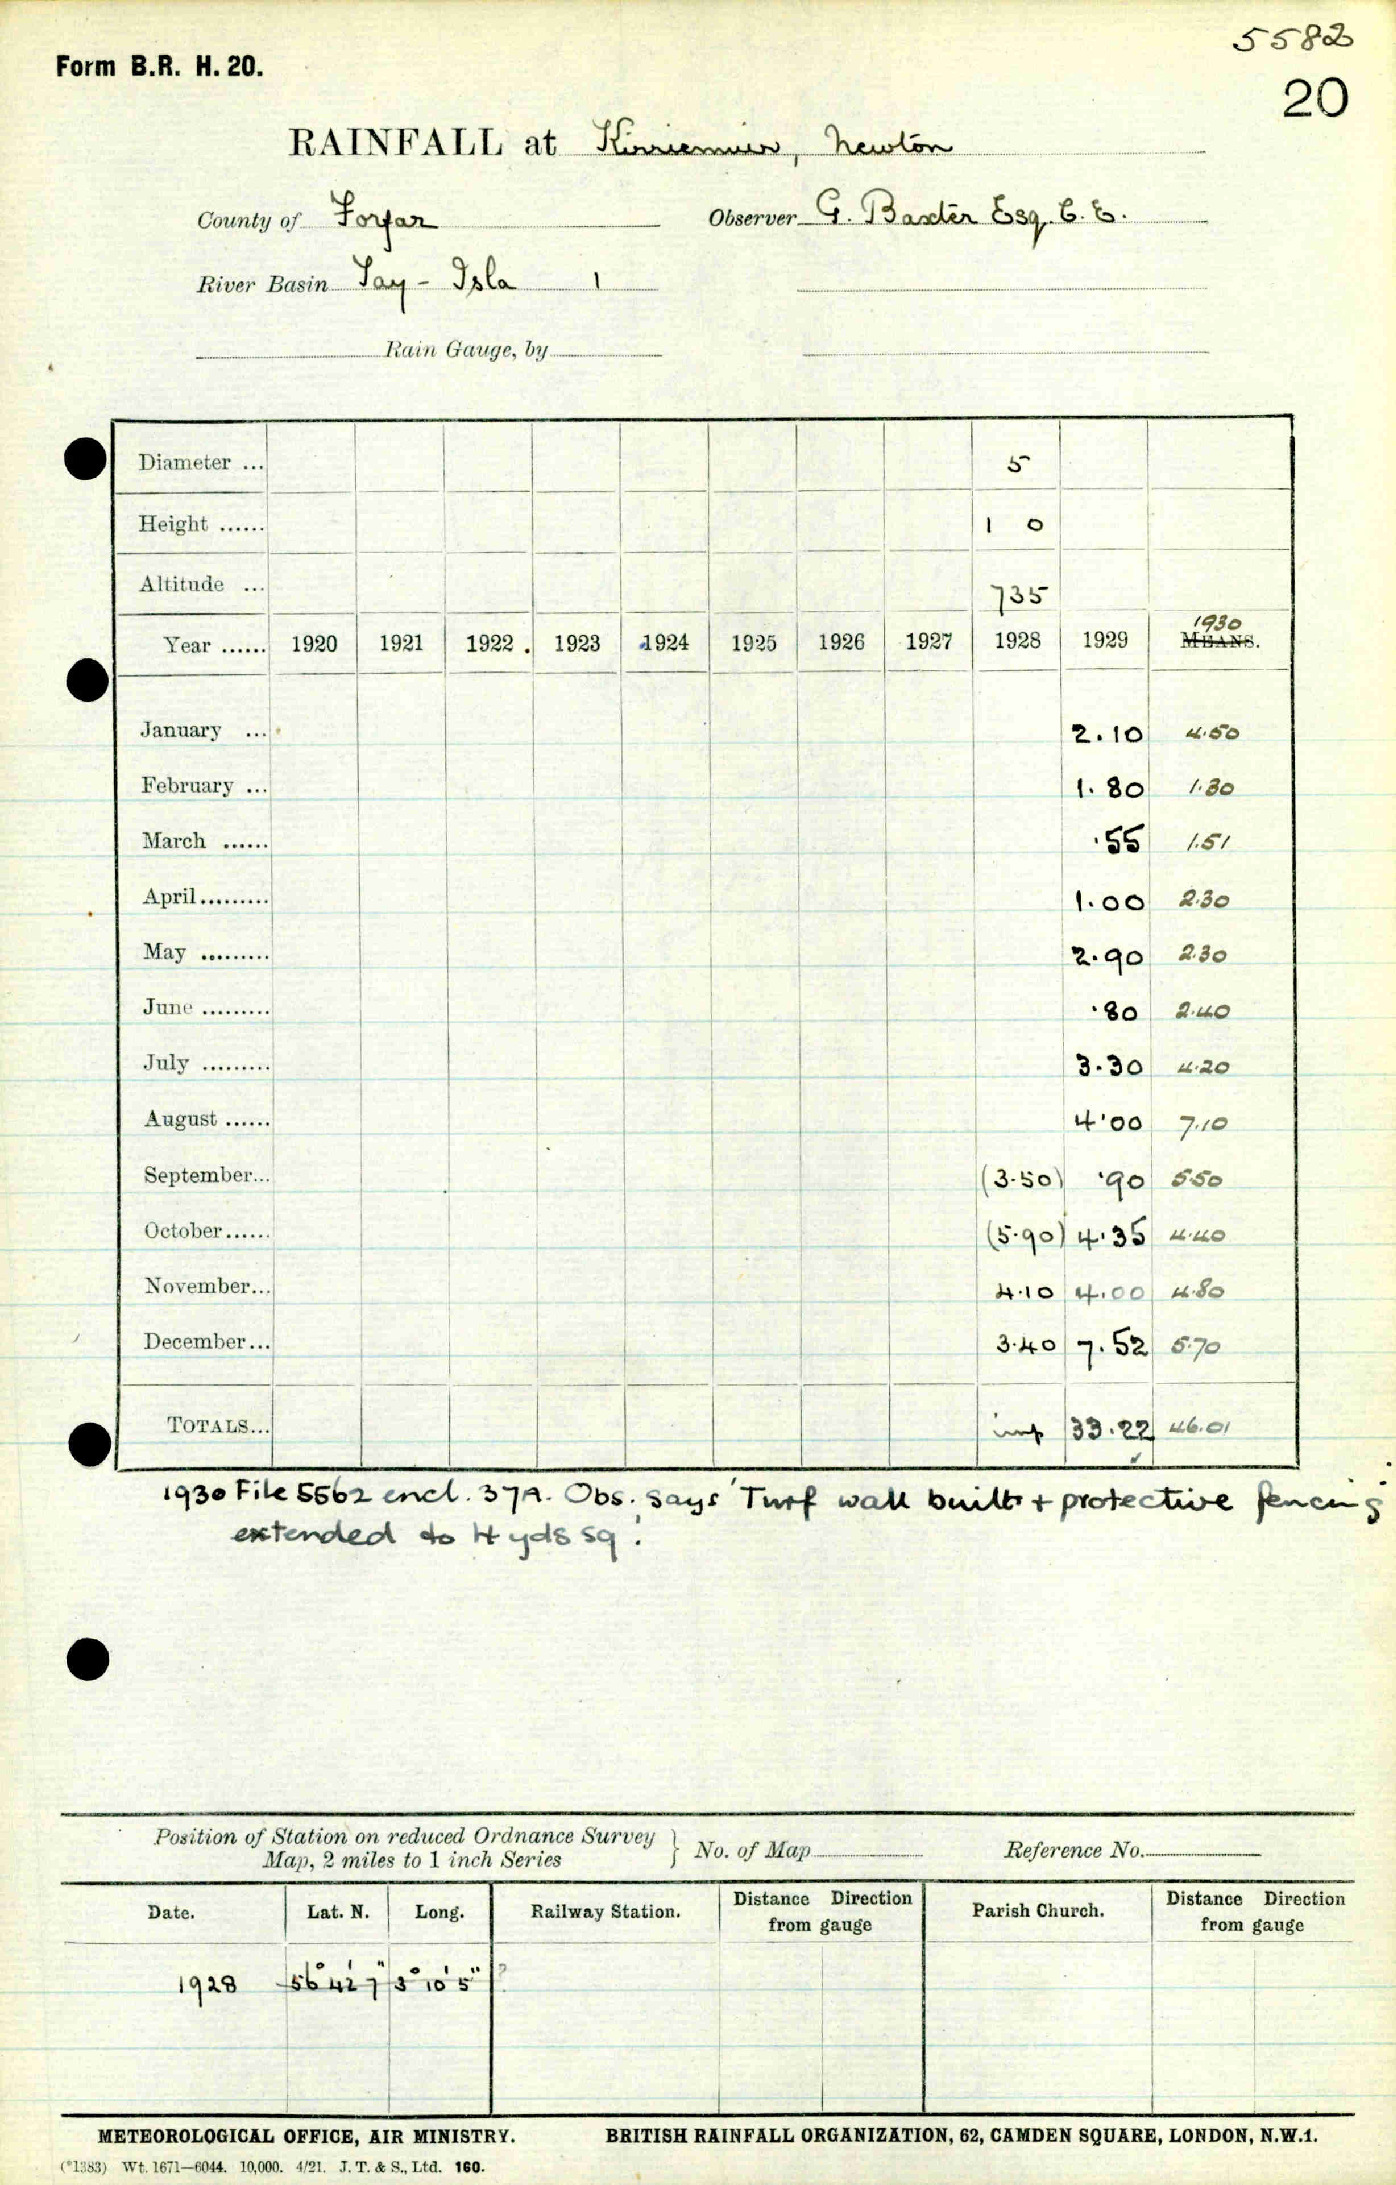 5582
Form B.R. H. 20.
20
RAINFALL at Kirriemuir, Newton
County of Forfar Observer G. Baxter Esq. C. E.
River Basin Tay - Isla 1
Rain Gauge, by
Diameter ... 5
Height ...... 1 0
Altitude ... 735
Year ...... 1920 1921 1922 . 1923 1924 1925 1926 1927 1928 1929 1930 MEANS.
January ... 2.10 4.50
February ... 1.80 1.30
March ...... .55 1.51
April......... 1.00 2.30
May ......... 2.90 2.30
June ......... .80 2.40
July ......... 3.30 4.20
August ...... 4.00 7.10
September... (3.50) .90 5.50
October...... (5.90) 4.35 4.40
November... 4.10 4.00 4.80
December... 3.40 7.52 5.70
TOTALS... imp 33.22 46.01
1930 File 5562 encl. 37A. Obs. says 'Turf wall built + protective fencing
extended to 4 yds sq.'
Position of Station on reduced Ordnance Survey
Map, 2 miles to 1 inch Series } No. of Map Reference No.
Date. Lat. N. Long. Railway Station. Distance Direction from gauge Parish Church. Distance Direction from gauge
1928 56° 42' 7" 3° 10' 5" ?
METEOROLOGICAL OFFICE, AIR MINISTRY. BRITISH RAINFALL ORGANIZATION, 62, CAMDEN SQUARE, LONDON, N.W.1.
(*1383) Wt. 1671—6044. 10,000. 4/21. J. T. & S., Ltd. 160.